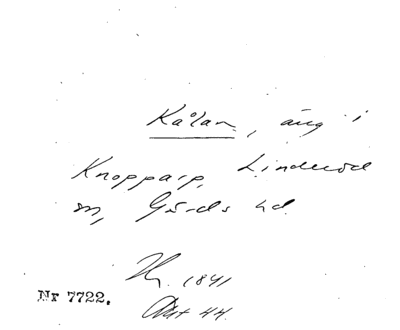 Kålan, äng i
Knopparp, Linderöd
sn, Gärds hd.
1841
Akt 44.
Nr 7722.